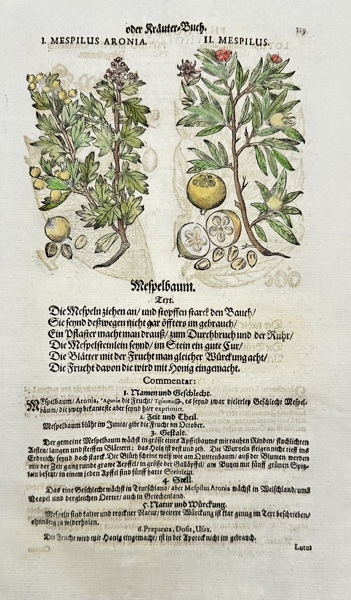 oder Kräuter-Buch. 319
I. MESPILUS ARONIA. II. MESPILUS.
Mespelbaum.
Text.
Die Mespeln ziehen an/ und stopffen starck den Bauch/
Sie seynd deßwegen nicht gar öffters im gebrauch/
Ein Pflaster macht man drauß/ zum Durchbruch und der Ruhr/
Die Mespelsteinlein seynd/ im Stein ein gute Cur/
Die Blätter mit der Frucht man gleicher Würckung acht/
Die Frucht davon die wird mit Honig eingemacht.
Commentar:
1. Namen und Geschlecht.
Mespelbaum/ Aronia, die Frucht/ es seynd zwar vielerley Geschlecht Mespel-
bäum/ die zwey bekanteste aber seynd hier exprimirt.
2. Zeit und Theil.
Mespelbaum blüht im Junio/ gibt die Frucht im October.
3. Gestalt.
Der gemeine Mespelbaum wächst in grösse eines Apfelbaums mit rauhen Rinden/ stachlichten
Aesten/ langen und steiffen Blättern; das Holz ist vest und zeh. Die Wurzeln steigen nicht tieff ins
Erdreich/ seynd doch starck. Die Blüth
mit der Zeit gang runde graue Aepffel/ in grösse der Galläpffel/ am Butzen mit fünff grünen Spitz-
lein besetzt/ in einem jeden Apfel sind fünff harte Steinlein.
4. Stell.
Das eine Geschlecht wächst in Teutschland/ aber Mespilus Aronia wächst in Welschland/ umb
Neapel und dergleichen Oerter/ auch in Griechenland.
5. Natur und Würckung.
Mespeln sind kalter und trockner Natur/ weitere Würckung ist klar genug im Text beschrieben/
ohnnötig zu widerholen.
6. Præparata, Dosis, Usus.
Die Frucht wird mit Honig eingemacht/ ist in der Apoteck nicht im gebrauch.
Lotus